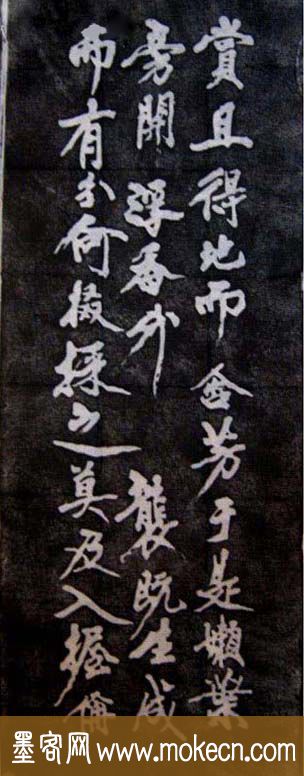 賞且得地而含芳于是嫩葉
旁開浮香外襲既生成
而有分何掇採之莫及入握
墨客网 www.mokecn.com